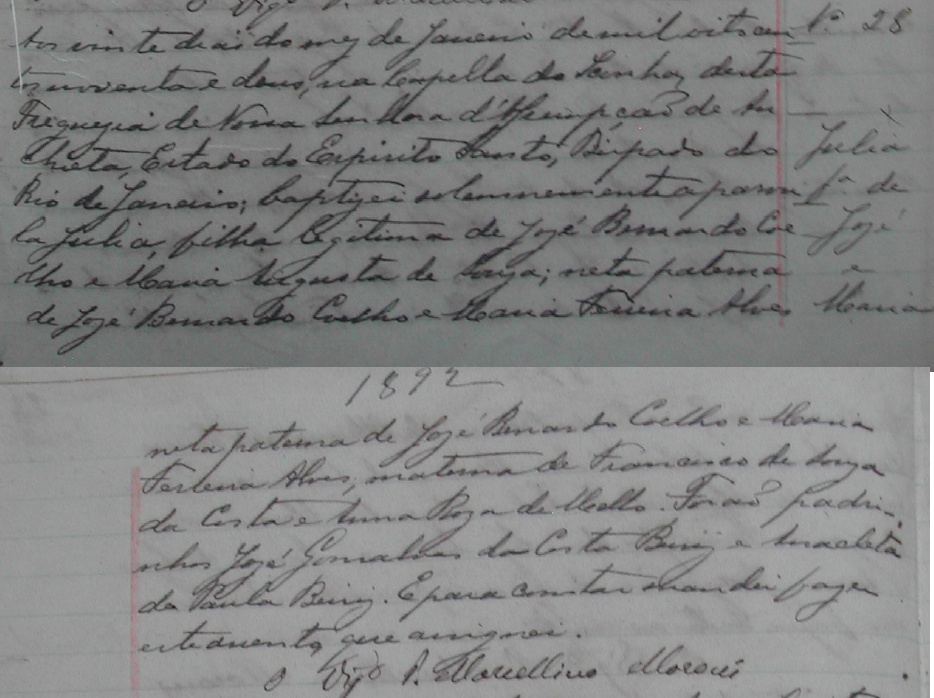 O Vig.º P.
Aos vinte dias do mez de Janeiro de mil oitocen N.º 28
tos noventa e dous, na Capella do Senhor desta
Freguezia de Nossa Senhora d'Assumpcaõ de An
chieta, Estado do Espirito Santo, Bispado do Julia
Rio de Janeiro; baptizei solemnemente a parvu f.ª de
la Julia, filha legitima de José Bernardo Coe José
lho e Maria Augusta de Souza; neta paterna e
de José Bernardo Coelho e Maria Ferreira Alves Maria
1892
neta paterna de José Bernardo Coelho e Maria
Ferreira Alves; materna de Francisco de Souza
da Costa e Anna Roza de Mello. Foraõ padri
nhos José Gonsalves da Costa Beiriz e Anacleta
de Paula Beiriz. E para constar mandei fazer
este assento, que assignei.
O Vig.º P. Marcellino Moroni